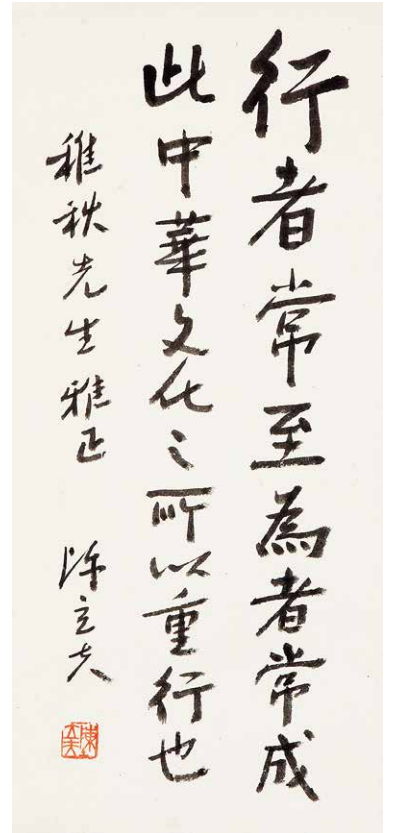 行者常至為者常成
此中華文化之所以重行也
稚秋先生雅正
陳立夫
陳立夫